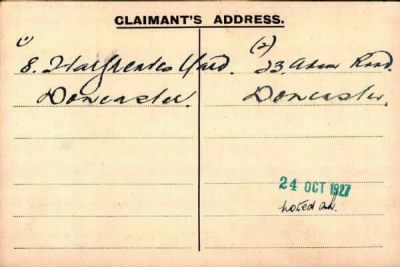 CLAIMANT'S ADDRESS.
(1)
8. Hargreaves Yard.
Doncaster.
(2)
23. Road.
Doncaster.
24 OCT 1927
noted